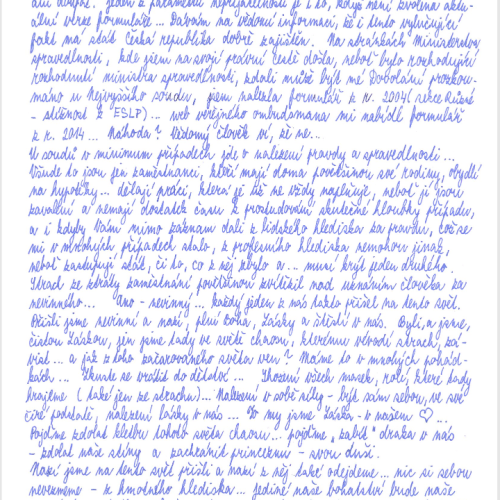 ani dvojté. Jeden z parametrů nepřijatelnosti je i to, když není zvolena aktu-
ální verze formuláře ... Dávám na vědomí informaci, že i tento vylučující
fakt má stát Česká republika dobře zajištěn. Na stránkách Ministerstva
spravedlnosti, kde jsem na svoji právní cestě došla, neboť bylo rozhodující
rozhodnutí ministra spravedlnosti, zdali může být mé Dovolání prozkou-
máno u Nejvyššího soudu, jsem nalezla formulář z r. 2004 (sekce Různé
- stížnost k ESLP) ... web veřejného ombudsmana mi nabídl formulář
z r. 2014 ... Náhoda? Vědomý člověk ví, že ne...
U soudů v minimum případech jde o nalezení pravdy a spravedlnosti ...
Všude to jsou jen zaměstnanci, kteří mají doma povětšinou své rodiny, obydlí
na hypotéky ... dělají práci, která je již ne vždy naplňuje, neboť jí jsou
zavaleni a nemají dostatek času k prostudování skutečné hloubky případu,
a i kdyby Vámi mimo záznam dali z lidského hlediska za pravdu, což se
mi v mnohých případech stalo, z profesního hlediska nemohou jinak,
neboť zastupují stát, či to, co z něj zbylo a ... musí krýt jeden druhého.
Strach ze ztráty zaměstnání povětšinou zvítězil nad uznáním člověka za
nevinného... Ano - nevinný ... každý jeden z nás takto přišel na tento svět.
Přišli jsme nevinní a nazí, plní tónu, lásky a štěstí v nás. Byli, a jsme,
čistou láskou, jen jsme tady ve světě chaosu, kterému vévodí strach, zá-
vist ... a jak z toho začarovaného světa ven? Máme to v mnohých pohád-
kách ... Zkuste se vrátit do dětství ... Shození všech masek, rolí, které tady
hrajeme (také jen ze strachu)... Nalezení v sobě síly - být sám sebou, ve své
čiré podstatě, nalezení lásky v nás ... To my jsme láska - v našem ♡ ...
Pojďme zdolat kletbu tohoto světa chaosu... pojďme „zabít" draka v nás
- zdolat naše stíny a zachránit princeznu - svou duši.
Nazí jsme na tento svět přišli a nazí z něj také odejdeme ... nic si sebou
nevezmeme - z hmotného hlediska ... jediné naše bohatství bude naše